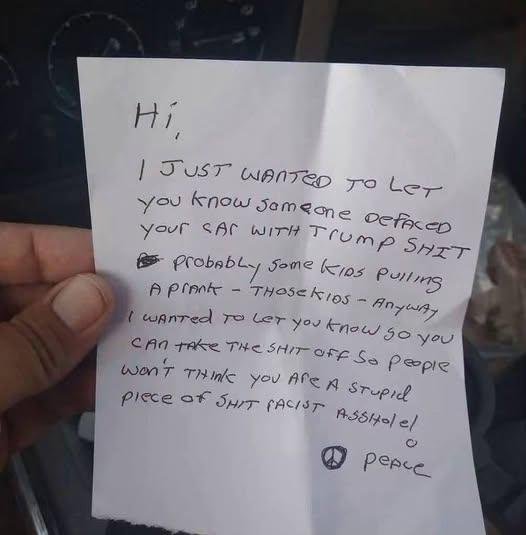 Hi,
I JUST WANTED TO LET
YOU KNOW SOMEONE DEFACED
YOUR CAR WITH TRUMP SHIT
PROBABLY SOME KIDS PULLING
A PRANK - THOSE KIDS - ANYWAY
I WANTED TO LET YOU KNOW SO YOU
CAN TAKE THE SHIT OFF SO PEOPLE
WON'T THINK YOU ARE A STUPID
PIECE OF SHIT RACIST ASSHOLE!
PEACE